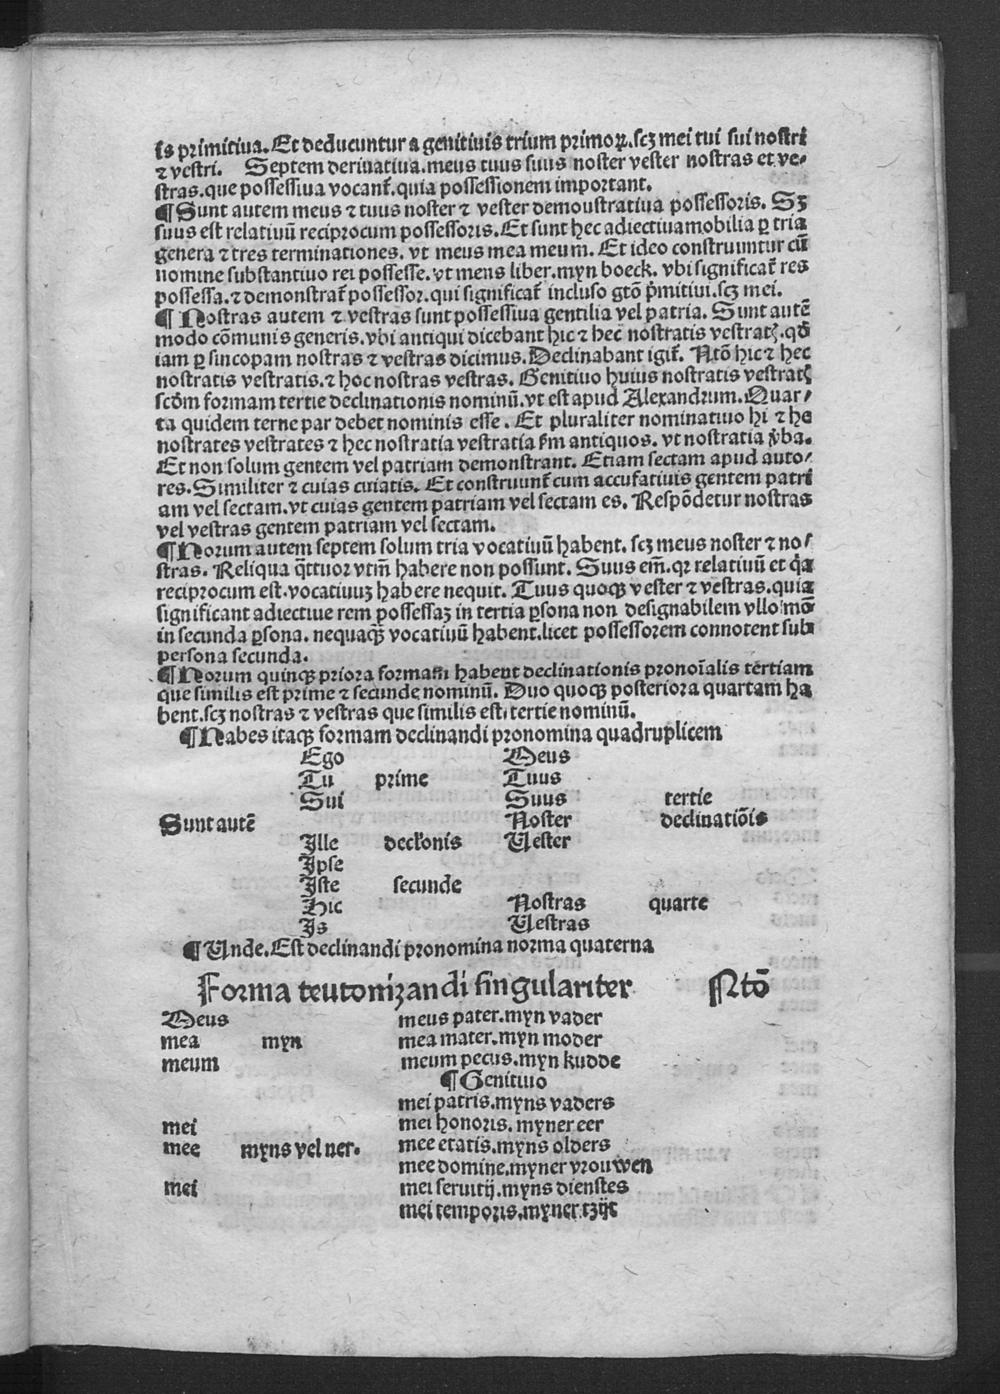 is primitiua. Et deducuntur a genitiuis trium primoꝝ. scꝫ mei tui sui nostri
⁊ vestri. Septem deriuatiua. meus tuus suus noster vester nostras et ve⸗
stras. que possessiua vocant̄. quia possessionem important.
¶ Sunt autem meus ⁊ tuus noster ⁊ vester demoustratiua possessoris. Sꝫ
suus est relatiuū reciprocum possessoris. Et sunt hec adiectiua mobilia ꝑ tria
genera ⁊ tres terminationes. vt meus mea meum. Et ideo construuntur cū
nomine substantiuo rei possesse. vt meus liber. myn boeck. vbi significat̄ res
possessa. ⁊ demonstrat̄ possessor. qui significat̄ incluso gtō p̄mitiui. scꝫ mei.
¶ Nostras autem ⁊ vestras sunt possessiua gentilia vel patria. Sunt autē
modo cōmunis generis. vbi antiqui dicebant hic ⁊ hec nostratis vestratꝭ. qd̄
iam ꝑ sincopam nostras ⁊ vestras dicimus. Declinabant igit̄. Ntō hic ⁊ hec
nostratis vestratis. ⁊ hoc nostras vestras. Genitiuo huius nostratis vestratꝭ
scd̄m formam tertie declinationis nominū. vt est apud Alexandrum. Quar⸗
ta quidem terne par debet nominis esse. Et pluraliter nominatiuo hi ⁊ he
nostrates vestrates ⁊ hec nostratia vestratia ẜm antiquos. vt nostratia v̄ba.
Et non solum gentem vel patriam demonstrant. Etiam sectam apud auto⸗
res. Similiter ⁊ cuias cuiatis. Et construunt̄ cum accusatiuis gentem patri
am vel sectam. vt cuias gentem patriam vel sectam es. Respōdetur nostras
vel vestras gentem patriam vel sectam.
¶ Horum autem septem solum tria vocatiuū habent. scꝫ meus noster ⁊ no⸗
stras. Reliqua q̄ttuor vtm̄ habere non possunt. Suus em̄. qr relatiuū et q̄a
reciprocum est. vocatiuuꝫ habere nequit. Tuus quoqꝫ vester ⁊ vestras. quia
significant adiectiue rem possessaꝫ in tertia ꝑsona non designabilem vllo mō
in secunda ꝑsona. nequaqꝫ vocatiuū habent. licet possessorem connotent sub
persona secunda.
¶ Horum quinqꝫ priora formam̄ habent declinationis pronoīalis tertiam
que similis est prime ⁊ secunde nominū. Duo quoqꝫ posteriora quartam ha
bent. scꝫ nostras ⁊ vestras que similis est tertie nominū.
¶ Habes itaqꝫ formam declinandi pronomina quadruplicem
Ego Meus
Tu prime Tuus
Sui Suus tertie
Sunt autē Noster declinatiōis
Ille decl̄onis Uester
Ipse
Iste secunde
Hic Nostras quarte
Is Uestras
¶ Unde. Est declinandi pronomina norma quaterna
Forma teutonizandi singulariter Ntō
Meus meus pater. myn vader
mea myn mea mater. myn moder
meum meum pecus. myn kudde
¶ Genitiuo
mei patris. myns vaders
mei mei honoris. myner eer
mee myns vel ner. mee etatis. myns olders
mee domine. myner vrouwen
mei mei seruitij. myns dienstes
mei temporis. myner tzijt